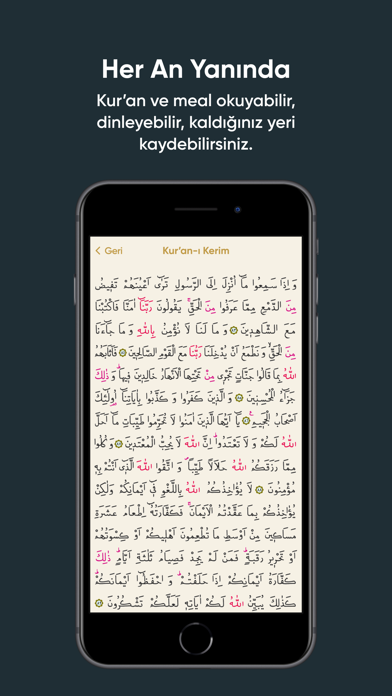 Her An Yanında
Kur’an ve meal okuyabilir,
dinleyebilir, kaldığınız yeri
kaydebilirsiniz.
Geri
Kur’an-ı Kerim
وَ اِذَا سَمِعُوا مَٓا اُنْزِلَ اِلَى الرَّسُولِ تَرٰٓى اَعْيُنَهُمْ تَفٖيضُ
مِنَ الدَّمْعِ مِمَّا عَرَفُوا مِنَ الْحَقِّۚ يَقُولُونَ رَبَّنَٓا اٰمَنَّا فَاكْتُبْنَا
مَعَ الشَّاهِدٖينَ ۝ وَ مَا لَنَا لَا نُؤْمِنُ بِاللّٰهِ وَ مَا جَٓاءَنَا
مِنَ الْحَقِّۙ وَ نَطْمَعُ اَنْ يُدْخِلَنَا رَبُّنَا مَعَ الْقَوْمِ الصَّالِحٖينَ ۝ فَاَثَابَهُمُ
اللّٰهُ بِمَا قَالُوا جَنَّاتٍ تَجْرٖى مِنْ تَحْتِهَا الْاَنْهَارُ خَالِدٖينَ فٖيهَاۜ وَ ذٰلِكَ
جَزَٓاءُ الْمُحْسِنٖينَ ۝ وَ الَّذٖينَ كَفَرُوا وَ كَذَّبُوا بِاٰيَاتِنَٓا اُو۬لٰٓئِكَ
اَصْحَابُ الْجَحٖيمِ۟ ۝ يَٓا اَيُّهَا الَّذٖينَ اٰمَنُوا لَا تُحَرِّمُوا طَيِّبَاتِ مَٓا اَحَلَّ
اللّٰهُ لَكُمْ وَ لَا تَعْتَدُواۜ اِنَّ اللّٰهَ لَا يُحِبُّ الْمُعْتَدٖينَ ۝ وَ كُلُوا
مِمَّا رَزَقَكُمُ اللّٰهُ حَلَالًا طَيِّبًاۖ وَ اتَّقُوا اللّٰهَ الَّذٖٓى اَنْتُمْ بِهٖ
مُؤْمِنُونَ ۝ لَا يُؤَاخِذُكُمُ اللّٰهُ بِاللَّغْوِ فٖٓى اَيْمَانِكُمْ وَلٰكِنْ
يُؤَاخِذُكُمْ بِمَا عَقَّدْتُمُ الْاَيْمَانَۚ فَكَفَّارَتُهُٓ اِطْعَامُ عَشَرَةِ
مَسَاكٖينَ مِنْ اَوْسَطِ مَا تُطْعِمُونَ اَهْلٖيكُمْ اَوْ كِسْوَتُهُمْ
اَوْ تَحْرٖيرُ رَقَبَةٍۜ فَمَنْ لَمْ يَجِدْ فَصِيَامُ ثَلٰثَةِ اَيَّامٍۜ ذٰلِكَ
كَفَّارَةُ اَيْمَانِكُمْ اِذَا حَلَفْتُمْۜ وَ احْفَظُٓوا اَيْمَانَكُمْۜ
كَذٰلِكَ يُبَيِّنُ اللّٰهُ لَكُمْ اٰيَاتِهٖ لَعَلَّكُمْ تَشْكُرُونَ ۝